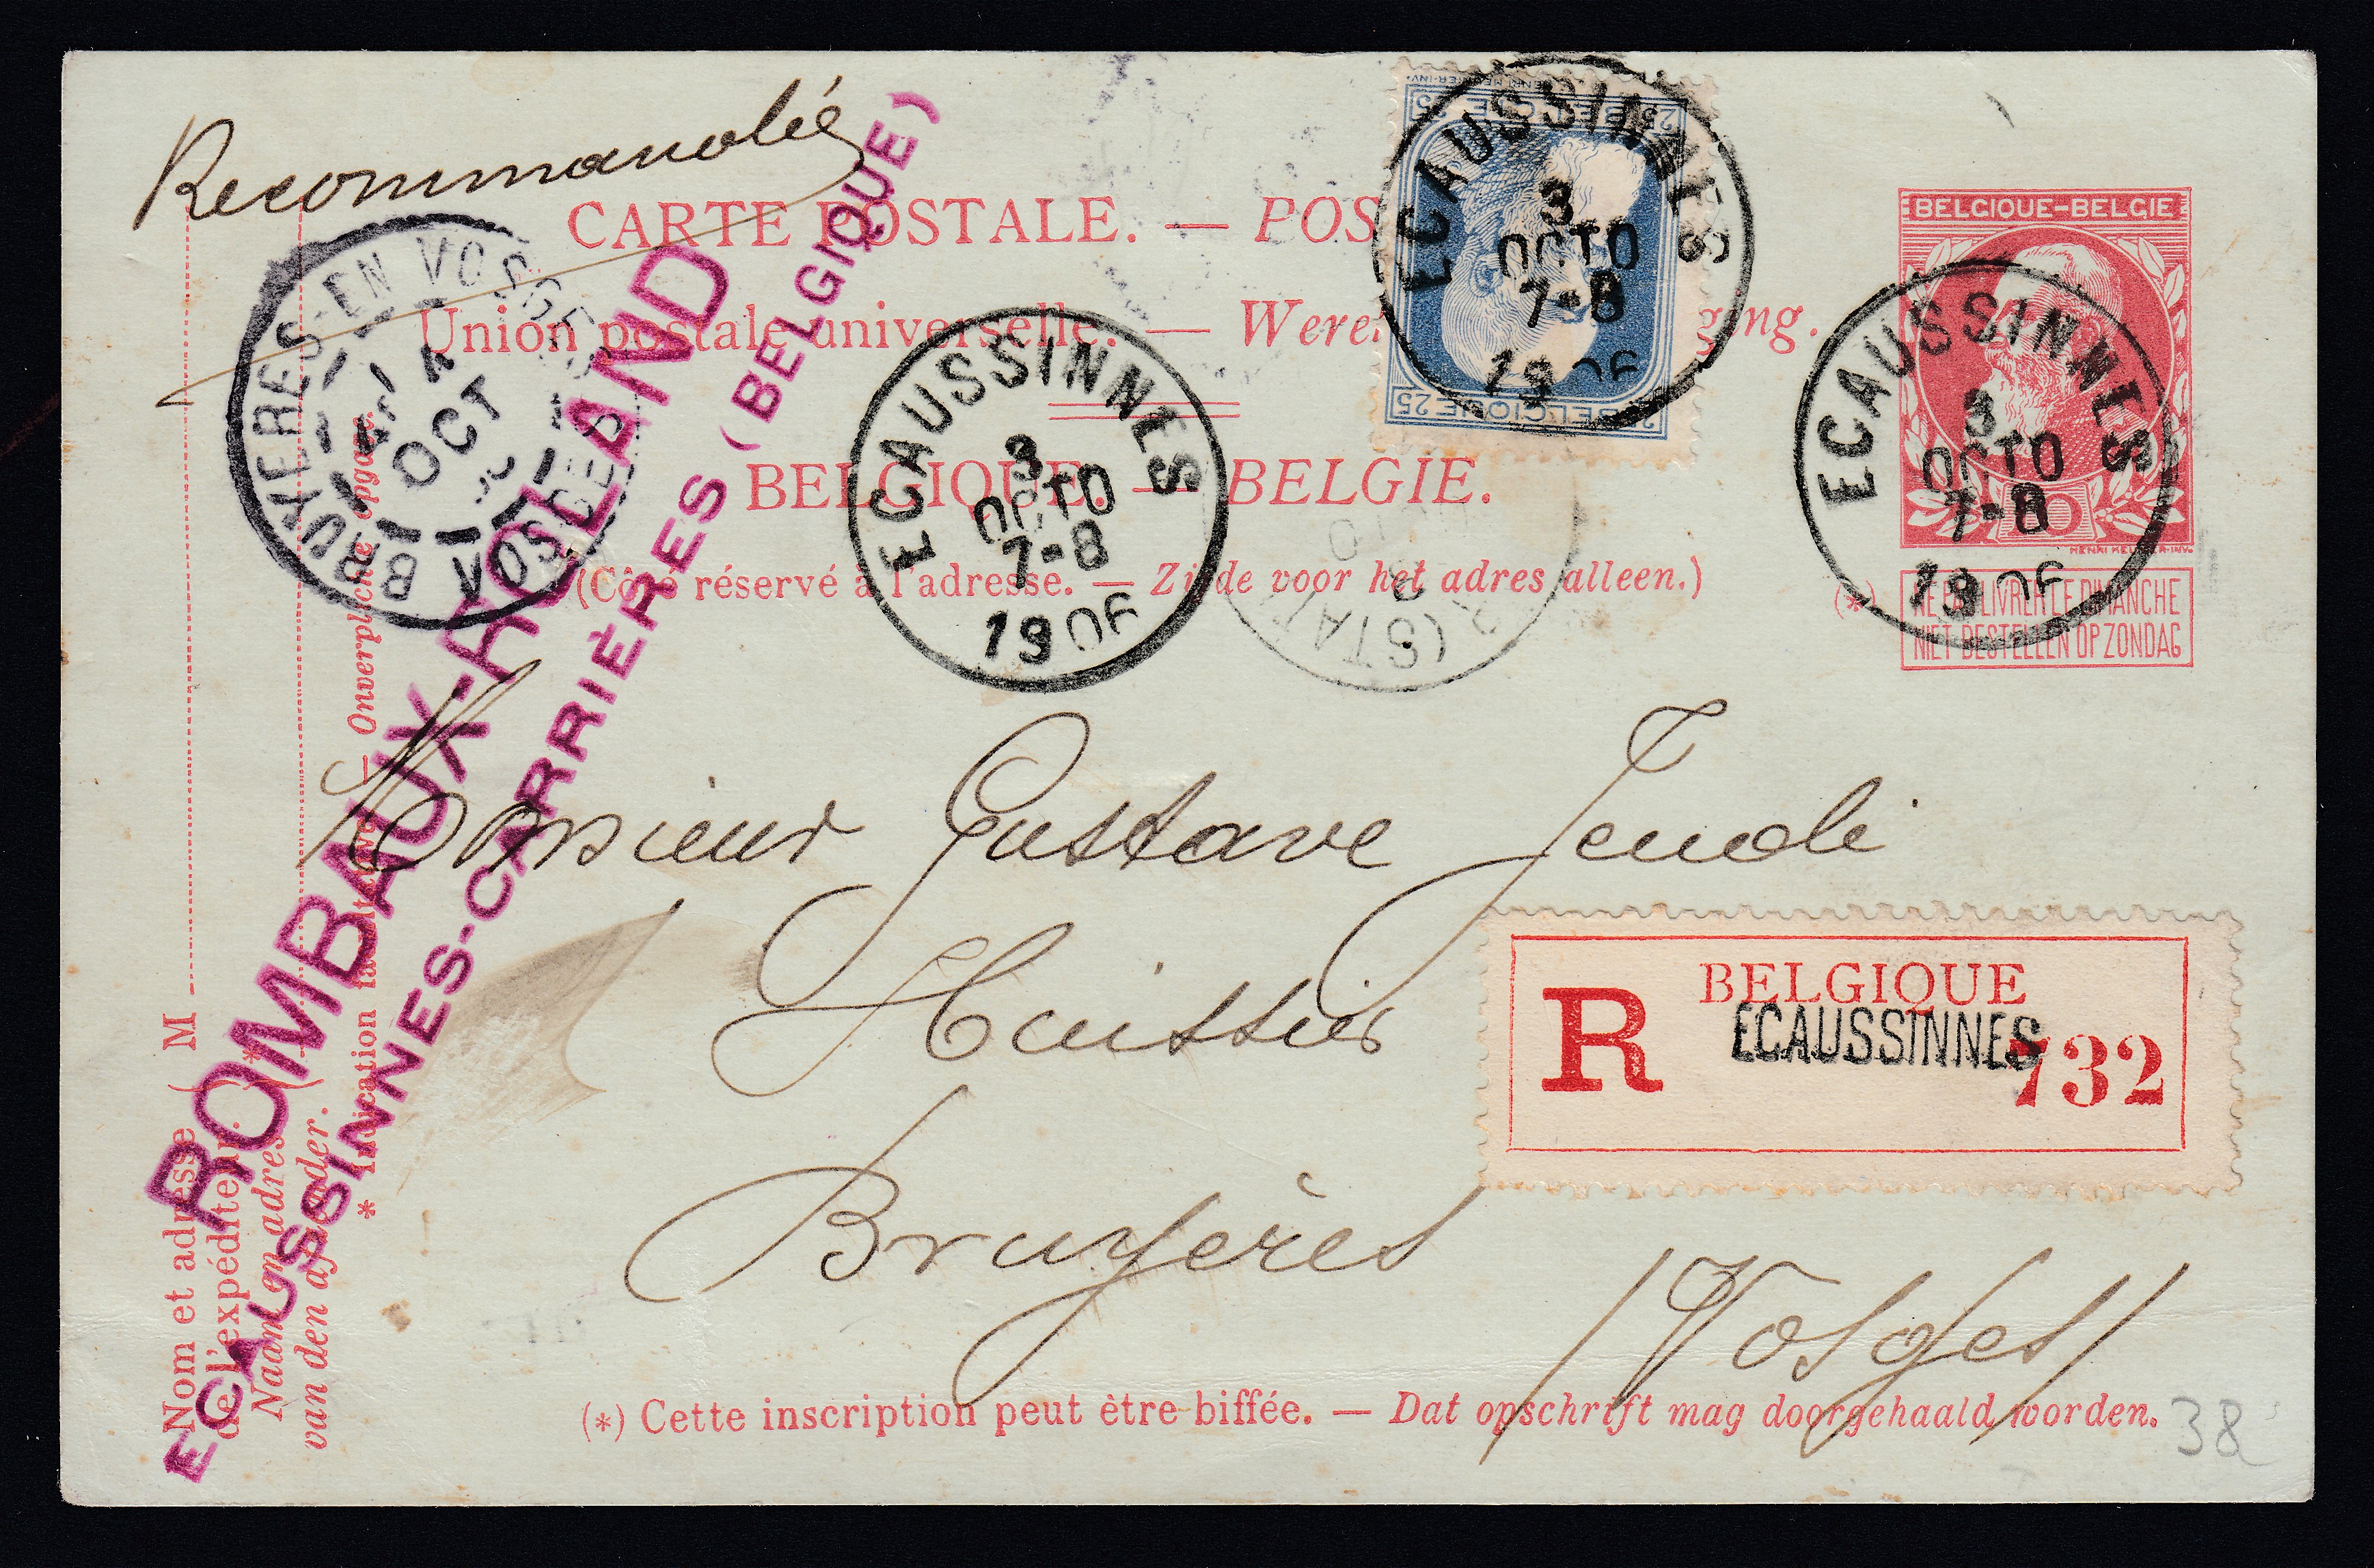 Recommandée
CARTE POSTALE. — POS
Union postale universelle. — Were ging.
BELGIQUE. — BELGIE.
(Côté réservé à l'adresse. — Zijde voor het adres alleen.)
BELGIQUE-BELGIE
10
HENRI MEUNIER-INV.
(*) NE PAS LIVRER LE DIMANCHE
NIET BESTELLEN OP ZONDAG
BELGIQUE 25
25 BELGIQUE 25
ECAUSSINNES
3
OCTO
7-8
1906
ECAUSSINNES
3
OCTO
7-8
1906
ECAUSSINNES
3
OCTO
7-8
1906
BRUYERES-EN VOSGES
OCT
VOSGES
ROMBAUX-ROLAND
ECAUSSINNES-CARRIÈRES (BELGIQUE)
Monsieur Gustave
Huissier
Bruyères
(Vosges)
BELGIQUE
R ECAUSSINNES 732
Nom et adresse ( M
de l'expéditeur.
Naam en adres
van den afzender.
* Indication facultative. — Onverplichte opgave.
(*) Cette inscription peut être biffée. — Dat opschrift mag doorgehaald worden.
38